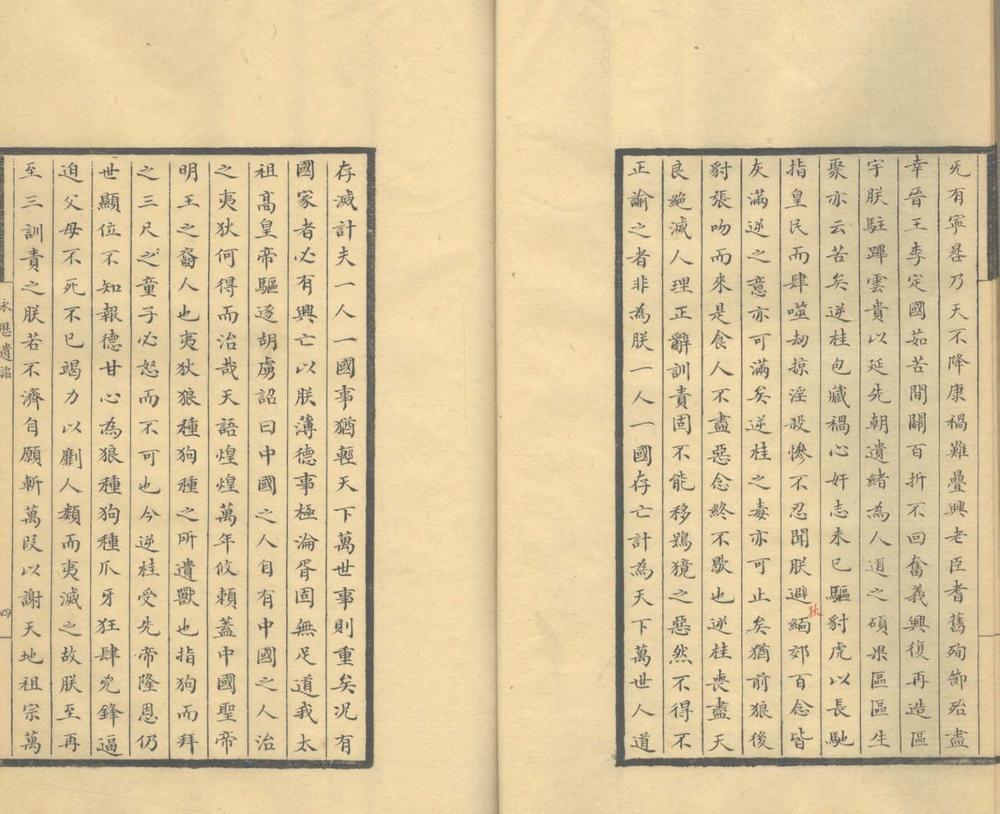 旡有寧晷乃天不降康禍難疊興老臣耆舊殉節殆盡
幸晉王李定國茹苦間關百折不回奮義興復再造區
宇朕駐蹕雲貴以延先朝遺緒為人道之碩果區區生
聚亦云苦矣逆桂包藏禍心奸志未已驅豺虎以長馳
指皇民而肆噬劫掠淫殺慘不忍聞朕避緬郊百念皆
灰滿逆之意亦可滿矣逆桂之毒亦可止矣猶前狼後
豺張吻而來是食人不盡惡念終不歇也逆桂喪盡天
良絕滅人理正辭訓責固不能移鴞獍之惡然不得不
正諭之者非為朕一人一國存亡計為天下萬世人道
存滅計夫一人一國事猶輕天下萬世事則重矣況有
國家者必有興亡以朕薄德事極淪胥固無足道我太
祖高皇帝驅逐胡虜詔曰中國之人自有中國之人治
之夷狄何得而治哉天語煌煌萬年攸賴蓋中國聖帝
明王之裔人也夷狄狼種狗種之所遺獸也指狗而拜
之三尺之童子必恕而不可也今逆桂受先帝隆恩仍
世顯位不知報德甘心為狼種狗種爪牙狂肆兇鋒逼
迫父母不死不已竭力以劘人類而夷滅之故朕至再
至三訓責之朕若不濟自願斬萬段以謝天地祖宗萬
永厯遺詔
四